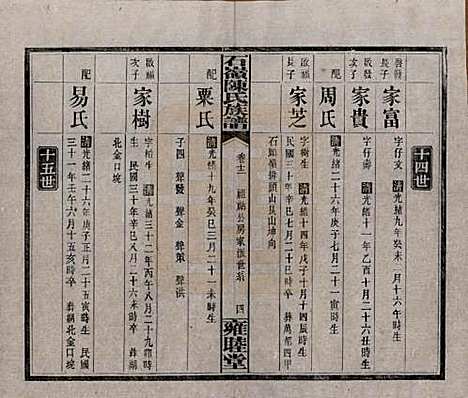 十四世
啟發長子
家富
字仔文
清光緒九年癸未二月十六日寅時生
啟發次子
家貴
字仔壽
清光緒十一年乙酉十月二十六丑時生
配
周氏
清光緒二十六年庚子七月二十一寅時生
啟福長子
家芝
字樹生
清光緒十四年戊子十月十四辰時生
民國三十年辛巳七月二十巳時卒
石頭嶺排頭山艮山坤向
石嶺陳氏族譜
卷十二
四
雍睦堂
配
粟氏
清光緒十九年癸巳三月二十一未時生
子四
聲發
聲金
聲策
聲洪
啟福次子
家樹
字柏生
清光緒三十二年丙午八月二十九寅時生
民國三十年辛巳八月二十六未時卒
北金口垸
配
易氏
清光緒二十六年庚子正月二十五寅時生
民國三十一年壬午六月十五亥時卒
北金口垸
十五世